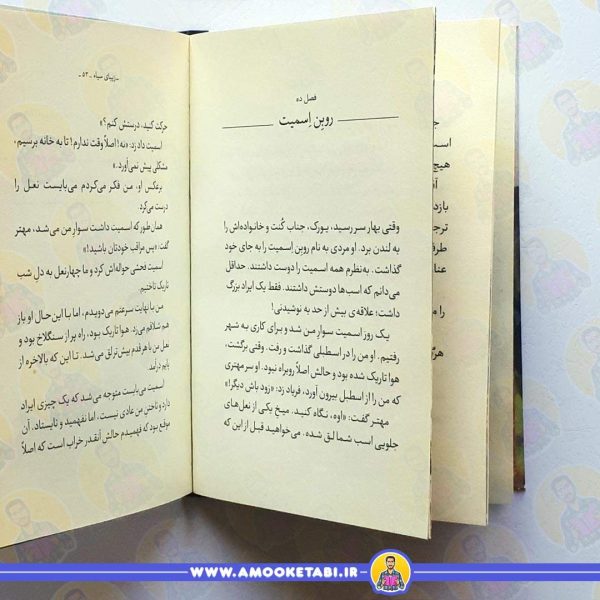 فصل ده
روبِن اِسمیت
وقتی بهار سر رسید، یورک، جناب کُنت و خانواده‌اش را
به لندن برد. او مردی به نام روبن اِسمیت را به جای خود
گذاشت. به‌نظرم همه اسمیت را دوست داشتند. حداقل
می‌دانم که اسب‌ها دوستش داشتند. فقط یک ایراد بزرگ
داشت؛ علاقه‌ی بیش از حد به نوشیدنی!
یک روز اسمیت سوار من شد و برای کاری به شهر
رفتیم. او من را در اسطبلی گذاشت و رفت. وقتی برگشت،
هوا تاریک شده بود و حالش اصلاً روبراه نبود. او سر مهتری
که من را از اسطبل بیرون آورد، فریاد زد: «زود باش دیگر!»
مهتر گفت: «اوه، نگاه کنید. میخ یکی از نعل‌های
جلویی اسب شما لق شده. می‌خواهید قبل از این که
ـ زیبای سیاه ـ ۵۳ ـ
حرکت کنید، درستش کنم؟»
اسمیت داد زد: «نه! اصلاً وقت ندارم! تا به خانه برسیم،
مشکلی پیش نمی‌آورد.»
برعکس او، من فکر می‌کردم می‌بایست نعل را
درست می‌کرد.
همان‌طور که اسمیت داشت سوار من می‌شد، مهتر
گفت: «پس مراقب خودتان باشید!»
اسمیت فحشی حواله‌اش کرد و ما چهارنعل به دلِ شب
تاریک تاختیم.
من با نهایت سرعتم می‌دویدم، اما با این حال او باز
هم شلاقم می‌زد. هوا تاریک بود، راه پر از سنگلاخ بود و
نعل من با هر قدم بیش‌تر لق می‌شد. تا این که بالاخره از
پایم درآمد.
اسمیت می‌بایست متوجه می‌شد که یک چیزی ایراد
دارد و تاختن من عادی نیست، اما نفهمید و نایستاد. آن
موقع بود که فهمیدم حالش آنقدر خراب است که اصلاً
WWW.AMOOKETABI.IR